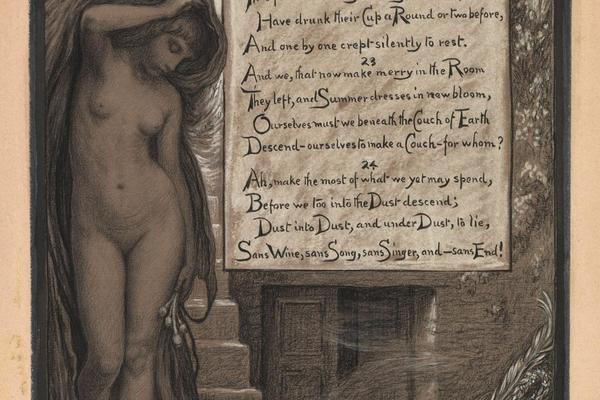 Have drunk their Cup a Round or two before,
And one by one crept silently to rest.
23
And we, that now make merry in the Room
They left, and Summer dresses in new bloom,
Ourselves must we beneath the Couch of Earth
Descend-ourselves to make a Couch-for whom?
24
Ah, make the most of what we yet may spend,
Before we too into the Dust descend;
Dust into Dust, and under Dust, to lie,
Sans Wine, sans Song, sans Singer, and-sans End!